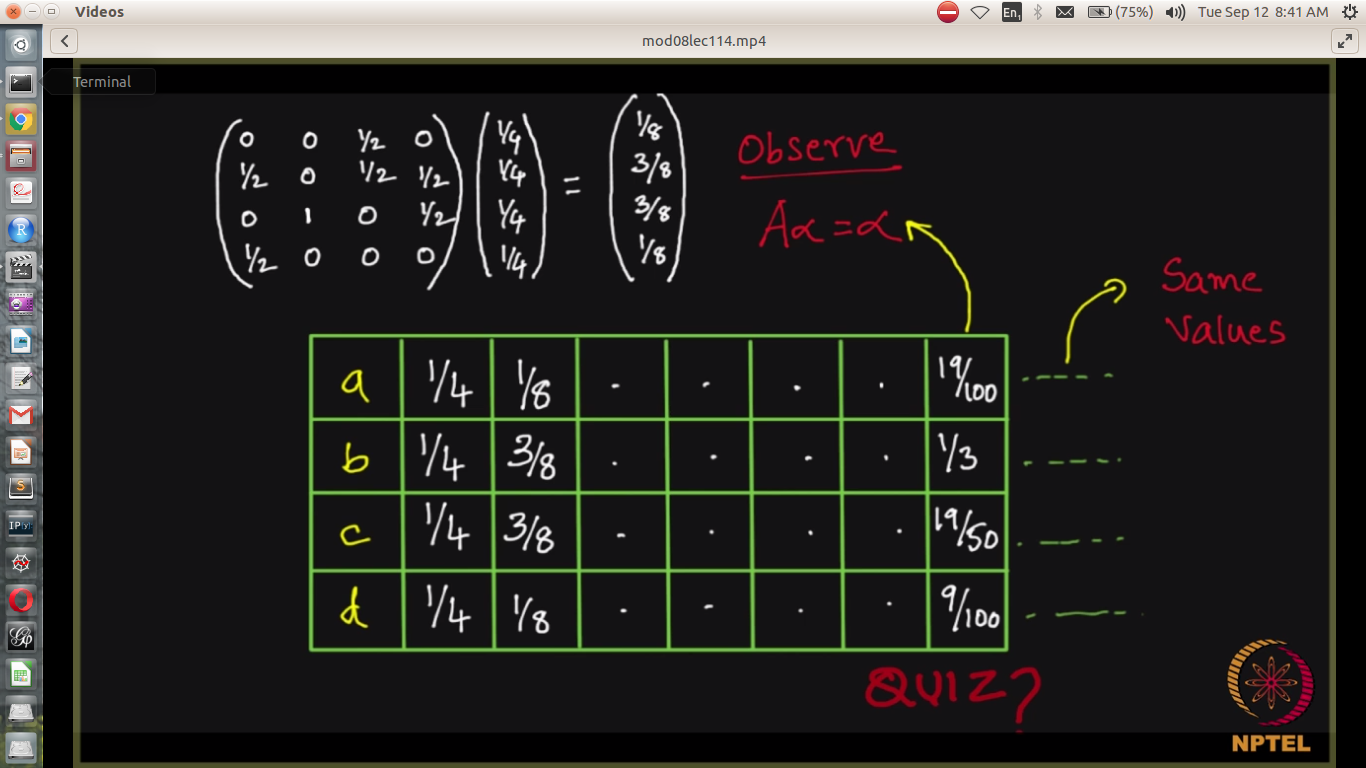 Videos
En1
(75%)
Tue Sep 12 8:41 AM
mod08lec114.mp4
Terminal
0 0 1/2 0
1/2 0 1/2 1/2
0 1 0 1/2
1/2 0 0 0
1/4
1/4
1/4
1/4
=
1/8
3/8
3/8
1/8
Observe
Aα = α
Same
Values
a 1/4 1/8 . . . . 19/100 -----
b 1/4 3/8 . . . . 1/3 -----
c 1/4 3/8 . . . . 19/50 -----
d 1/4 1/8 . . . . 9/100 -----
QUIZ?
NPTEL
R
S
IP[y]: